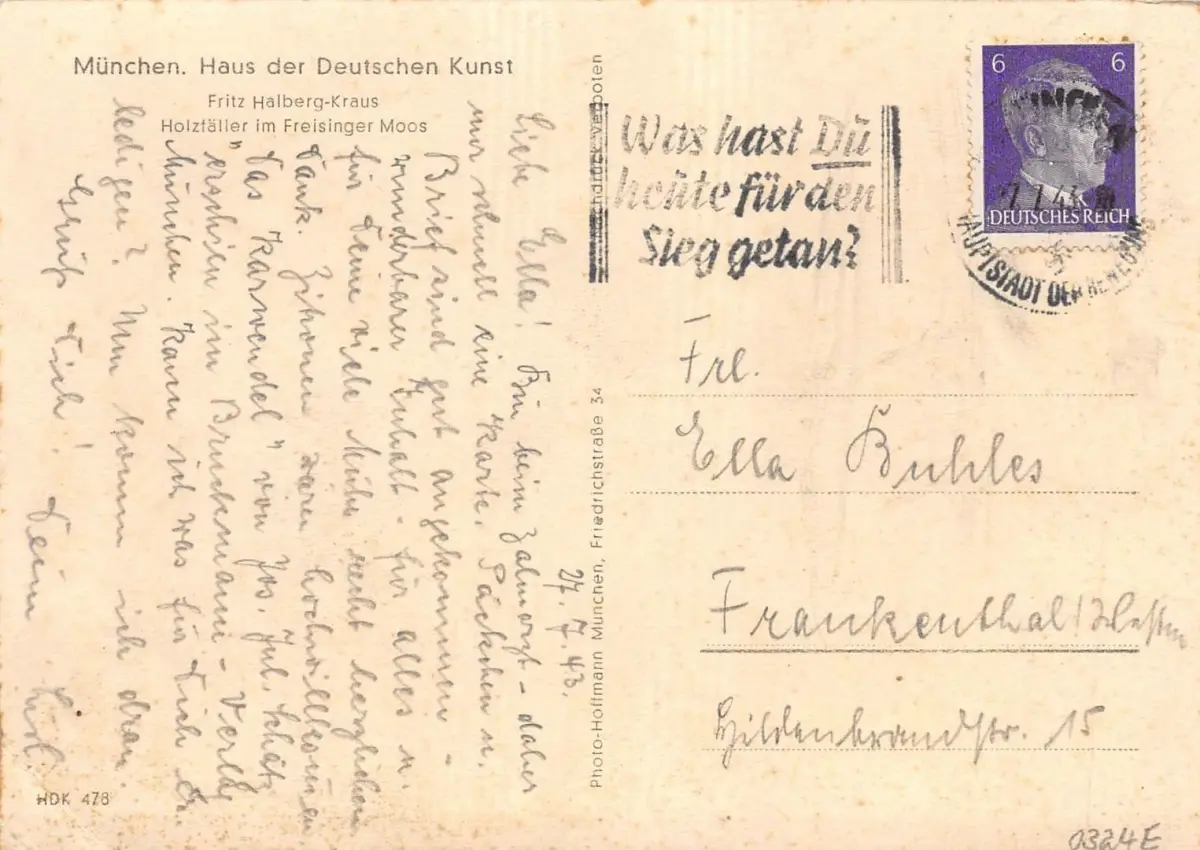 München. Haus der Deutschen Kunst
Fritz Halberg-Kraus
Holzfäller im Freisinger Moos
27.7.43.
Liebe Ella! Bin beim Zahnarzt - daher
nur schnell eine Karte. Päckchen u.
Brief sind gut angekommen -
wunderbarer Inhalt - für alles u.
für Deine viele Mühe recht herzlichen
Dank. Zitronen waren hochwillkommen
"Das Karwendel" von Jos. Jul. Schätz
erschien im Bruckmann-Verlag
München. Kann ich was für Dich er-
ledigen? Nun komm ich dran.
Grüß Dich! Dein
HDK 478
Photo-Hoffmann München, Friedrichstraße 34
Nachdruck verboten
Was hast Dü
heüte für den
Sieg getan?
6 6
DEUTSCHES REICH
7.43
HAUPTSTADT DER BEWEGUNG
Frl.
Ella Buhles
Frankenthal/
Hildenbrandstr. 15
0324E